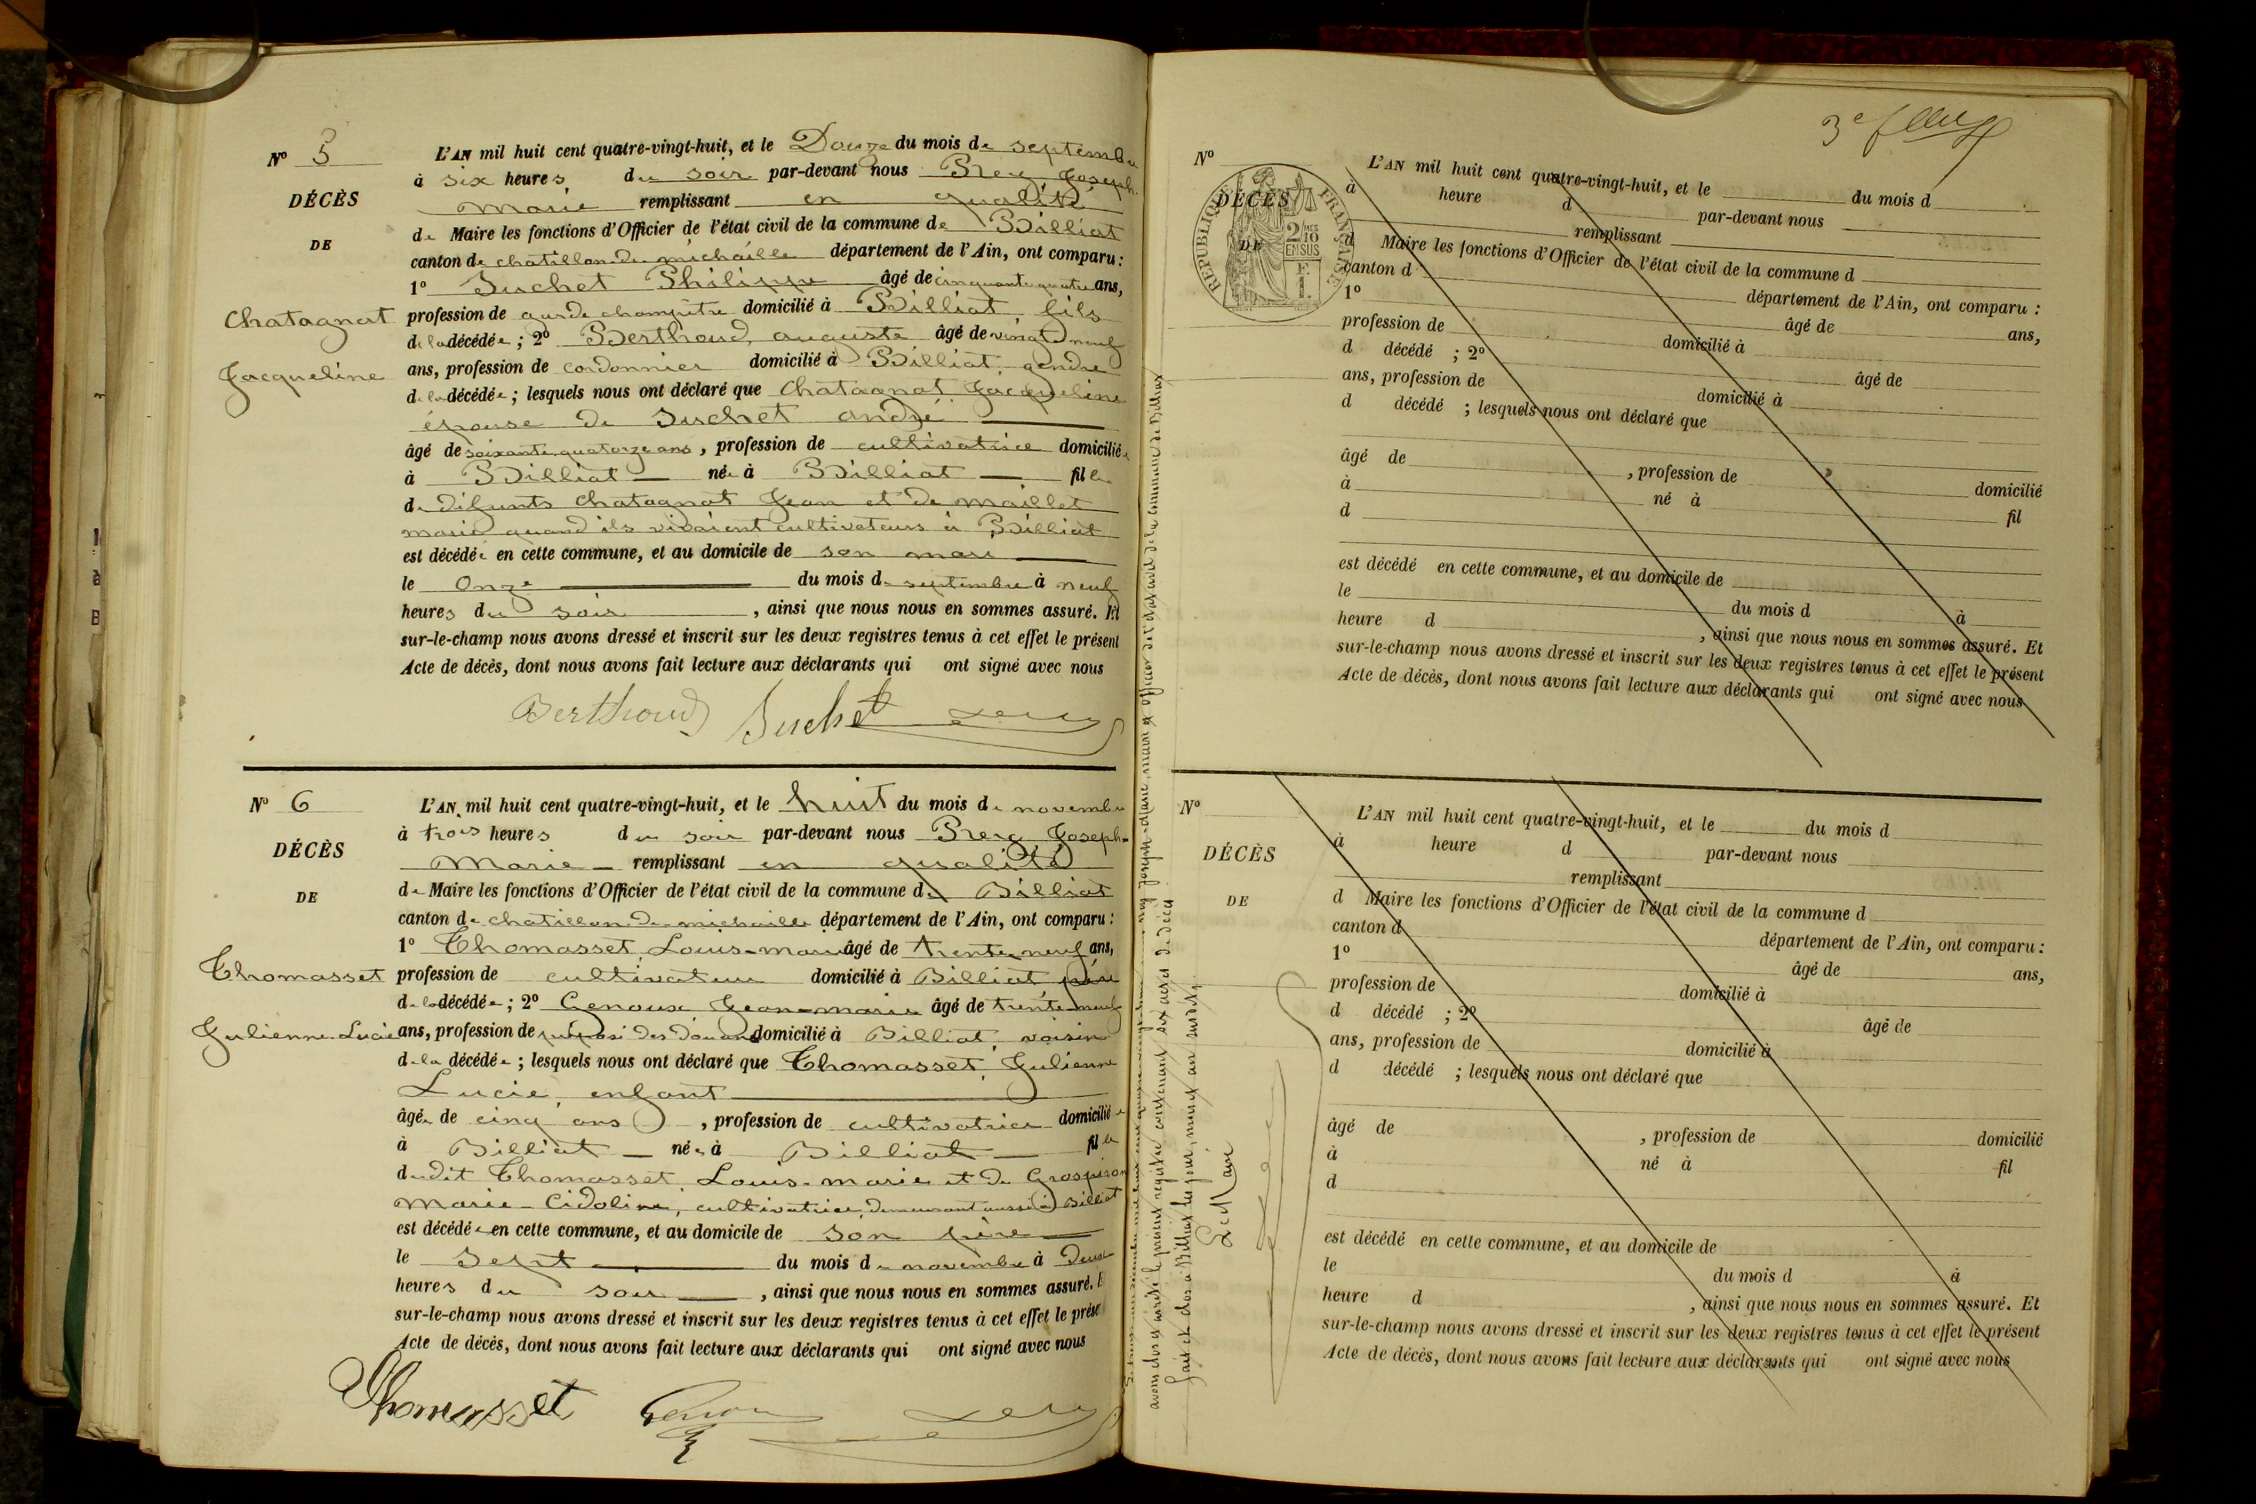 Nº 5
DÉCÈS
DE
Chatagnat
Jacqueline
L'AN mil huit cent quatre-vingt-huit, et le Douze du mois de septembre
à six heures du soir par-devant nous Prery Joseph
Marie remplissant en qualité
de Maire les fonctions d'Officier de l'état civil de la commune de Billiat
canton de chatillon de michaille département de l'Ain, ont comparu :
1º Suchet Philippe âgé de cinquante quatre ans,
profession de garde champêtre domicilié à Billiat, fils
de la décédée ; 2º Berthoud, auguste âgé de vingt neuf
ans, profession de cordonnier domicilié à Billiat, gendre
de la décédée ; lesquels nous ont déclaré que Chatagnat, Jacqueline
épouse de Suchet andré
âgé de soixante quatorze ans, profession de cultivatrice domiciliée
à Billiat née à Billiat fille
de défunts Chatagnat Jean et de maillet
marie quand ils vivaient cultivateurs à Billiat
est décédée en cette commune, et au domicile de son mari
le Onze du mois de septembre à neuf
heures du soir, ainsi que nous nous en sommes assuré. Et
sur-le-champ nous avons dressé et inscrit sur les deux registres tenus à cet effet le présent
Acte de décès, dont nous avons fait lecture aux déclarants qui ont signé avec nous
Berthoud Suchet
Nº 6
DÉCÈS
DE
Thomasset
Julienne Lucie
L'AN mil huit cent quatre-vingt-huit, et le huit du mois de novembre
à trois heures du soir par-devant nous Prery Joseph-
Marie remplissant en qualité
de Maire les fonctions d'Officier de l'état civil de la commune de Billiat
canton de chatillon de michaille département de l'Ain, ont comparu :
1º Thomasset, Louis-marie âgé de trente neuf ans,
profession de cultivateur domicilié à Billiat père
de la décédée ; 2º Genoux Jean-marie âgé de trente neuf
ans, profession de préposé des douanes domicilié à Billiat, voisin
de la décédée ; lesquels nous ont déclaré que Thomasset, Julienne
Lucie, enfant
âgée de cinq ans, profession de cultivatrice domiciliée
à Billiat née à Billiat fille
du dit Thomasset, Louis-marie et de Grospiron
Marie-Cidoline, cultivatrice demeurant aussi à Billiat
est décédée en cette commune, et au domicile de son père
le Sept du mois de novembre à Deux
heures du soir, ainsi que nous nous en sommes assuré. E
sur-le-champ nous avons dressé et inscrit sur les deux registres tenus à cet effet le prése
Acte de décès, dont nous avons fait lecture aux déclarants qui ont signé avec nous
Thomasset Genoux
maire et officier de l'état civil de la commune de Billiat
avons clos et arrêté le présent registre contenant six actes de décès
fait et clos à Billiat les jour, mois et an susdits.
Le Maire
3e
Nº
DÉCÈS
DE
RÉPUBLIQUE FRANÇAISE
2/10 EN SUS
F. 1.
L'AN mil huit cent quatre-vingt-huit, et le du mois d
à heure d par-devant nous
remplissant
d Maire les fonctions d'Officier de l'état civil de la commune d
canton d département de l'Ain, ont comparu :
1º âgé de ans,
profession de domicilié à
d décédé ; 2º âgé de
ans, profession de domicilié à
d décédé ; lesquels nous ont déclaré que
âgé de , profession de domicilié
à né à fil
d
est décédé en cette commune, et au domicile de
le du mois d à
heure d , ainsi que nous nous en sommes assuré. Et
sur-le-champ nous avons dressé et inscrit sur les deux registres tenus à cet effet le présent
Acte de décès, dont nous avons fait lecture aux déclarants qui ont signé avec nous
Nº
DÉCÈS
DE
L'AN mil huit cent quatre-vingt-huit, et le du mois d
à heure d par-devant nous
remplissant
d Maire les fonctions d'Officier de l'état civil de la commune d
canton d département de l'Ain, ont comparu :
1º âgé de ans,
profession de domicilié à
d décédé ; 2º âgé de
ans, profession de domicilié à
d décédé ; lesquels nous ont déclaré que
âgé de , profession de domicilié
à né à fil
d
est décédé en cette commune, et au domicile de
le du mois d à
heure d , ainsi que nous nous en sommes assuré. Et
sur-le-champ nous avons dressé et inscrit sur les deux registres tenus à cet effet le présent
Acte de décès, dont nous avons fait lecture aux déclarants qui ont signé avec nous